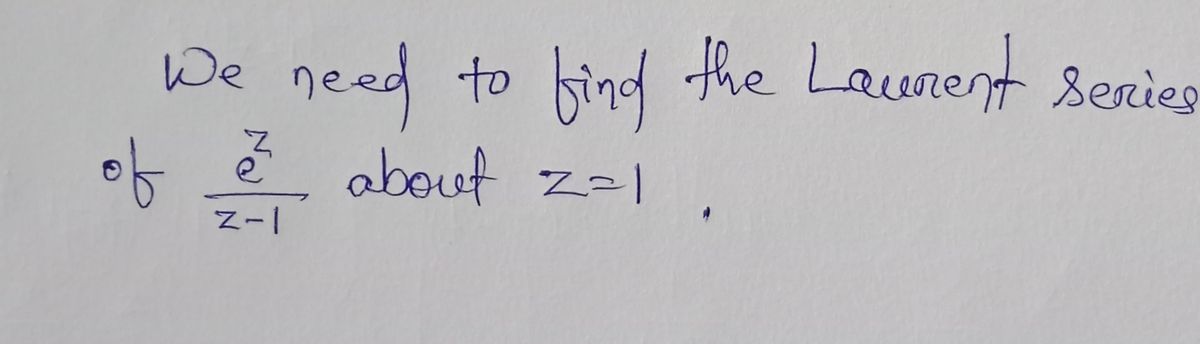 We need to find the Laurent series
of e^z/(z-1) about z=1.